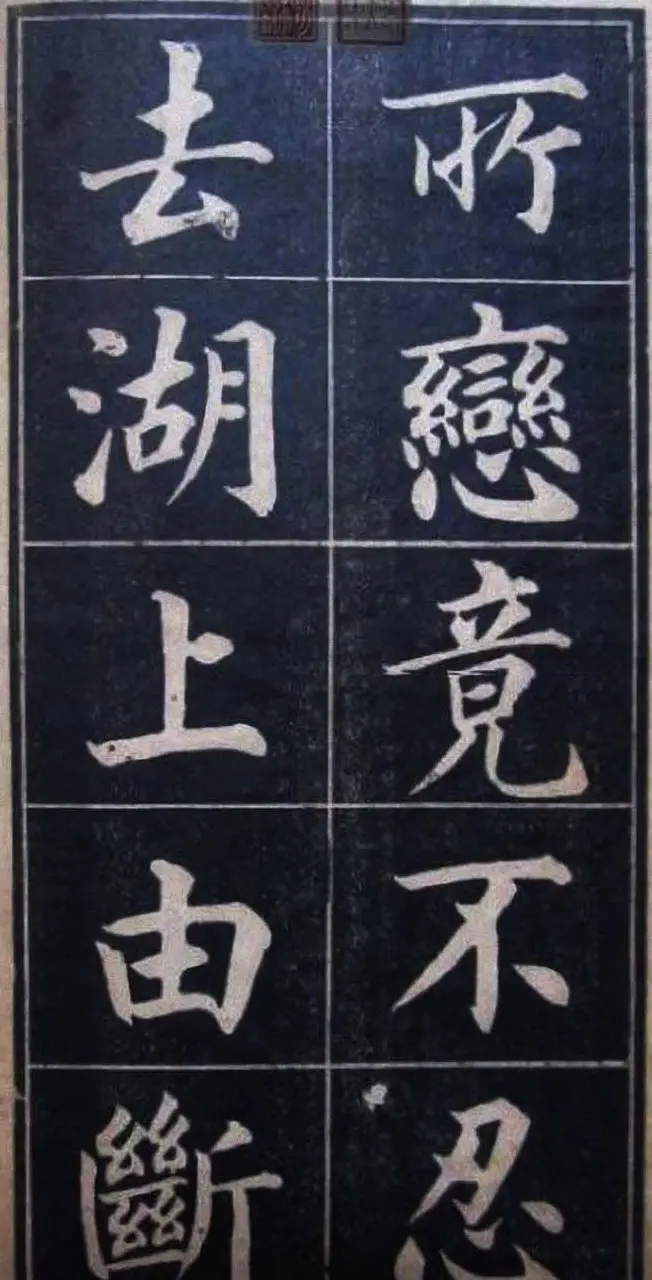 所戀竟不忍
去湖上由斷